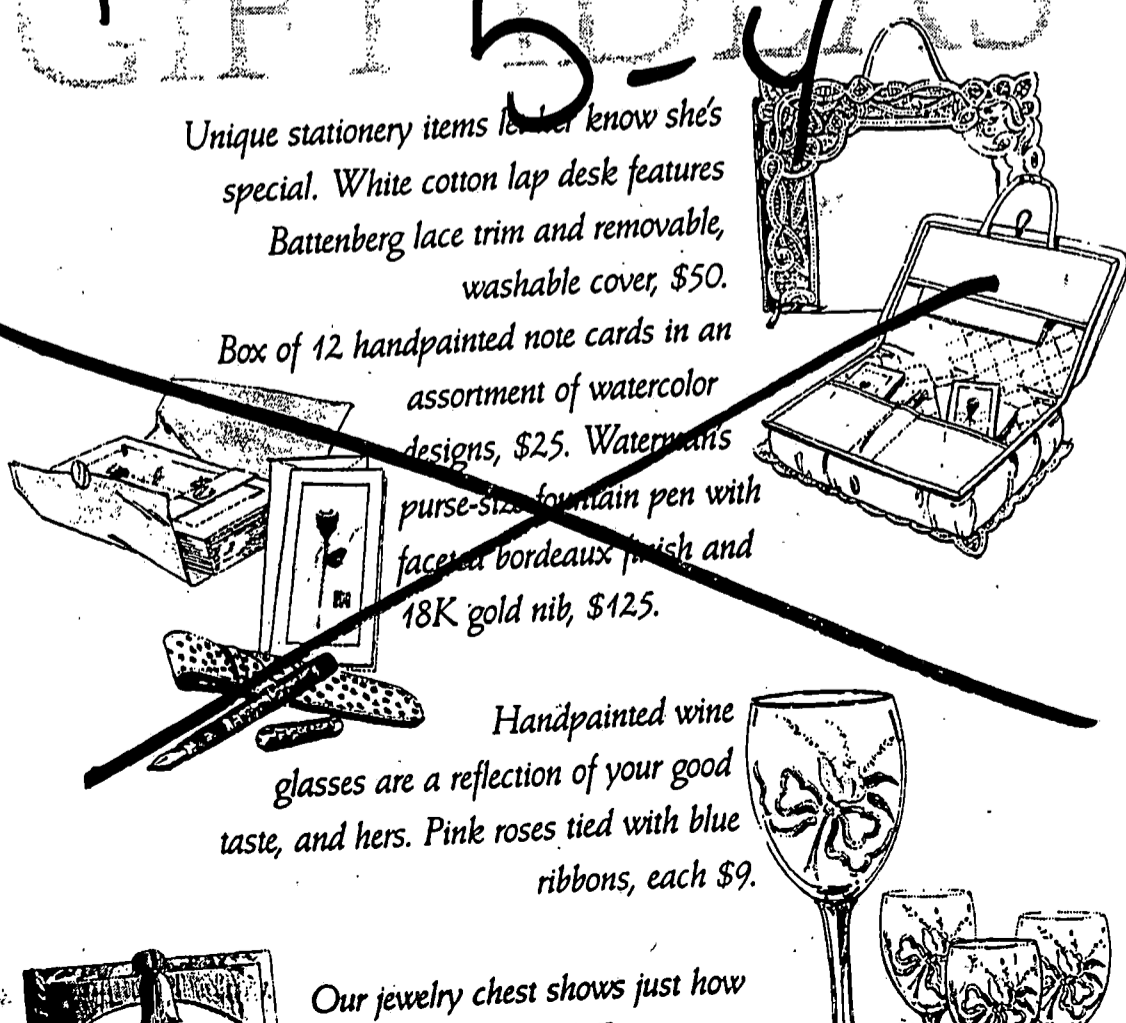 GIFT IDEAS
5-9
Unique stationery items let her know she's
special. White cotton lap desk features
Battenberg lace trim and removable,
washable cover, $50.
Box of 12 handpainted note cards in an
assortment of watercolor
designs, $25. Waterman's
purse-size fountain pen with
faceted bordeaux finish and
18K gold nib, $125.
Handpainted wine
glasses are a reflection of your good
taste, and hers. Pink roses tied with blue
ribbons, each $9.
Our jewelry chest shows just how